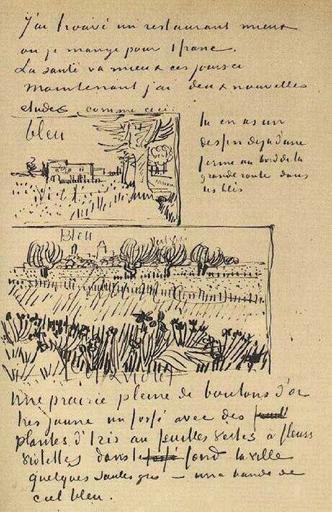 J'ai trouvé un restaurant mieux
ou je mange pour 1 franc.
La santé va mieux ces jours ci
Maintenant j'ai deux nouvelles
etudes comme ceci:
bleu
tu en as un
dessin deja d'une
ferme au bord de la
grande route dans
les blés
Bleu
Violet
Une prairie pleine de boutons d'or
tres jaune un fossé avec des
plantes d'Iris au feuilles vertes a fleurs
violettes dans le fond la ville
quelques saules gris – une bande de
ciel bleu.